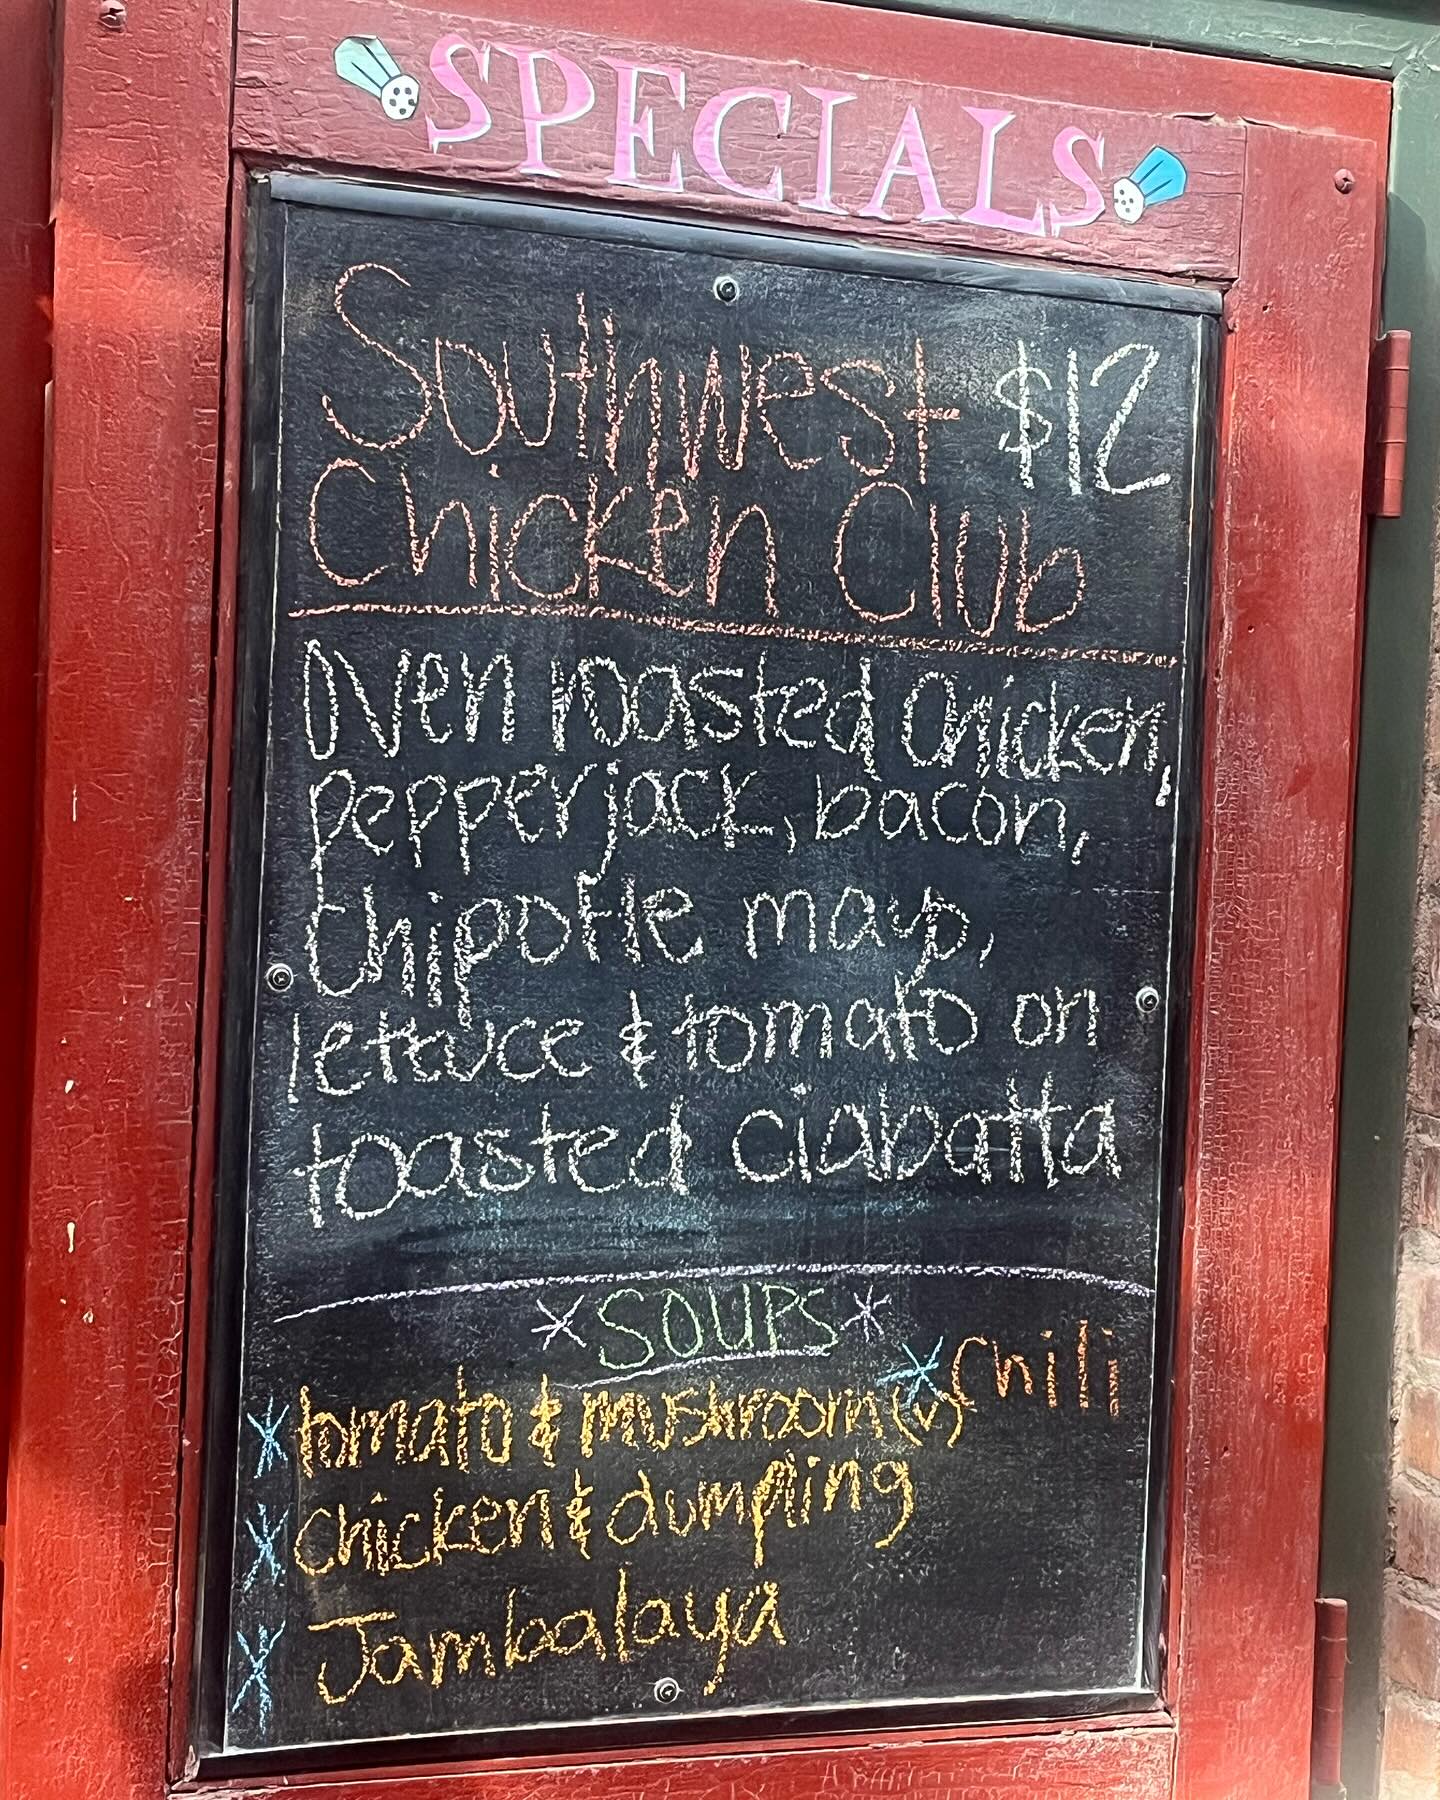 SPECIALS
Southwest $12
Chicken Club
Oven roasted chicken,
pepperjack, bacon,
chipotle mayo,
lettuce & tomato on
toasted ciabatta
*SOUPS*
* Chili
* tomato & mushroom (v)
* chicken & dumpling
* Jambalaya